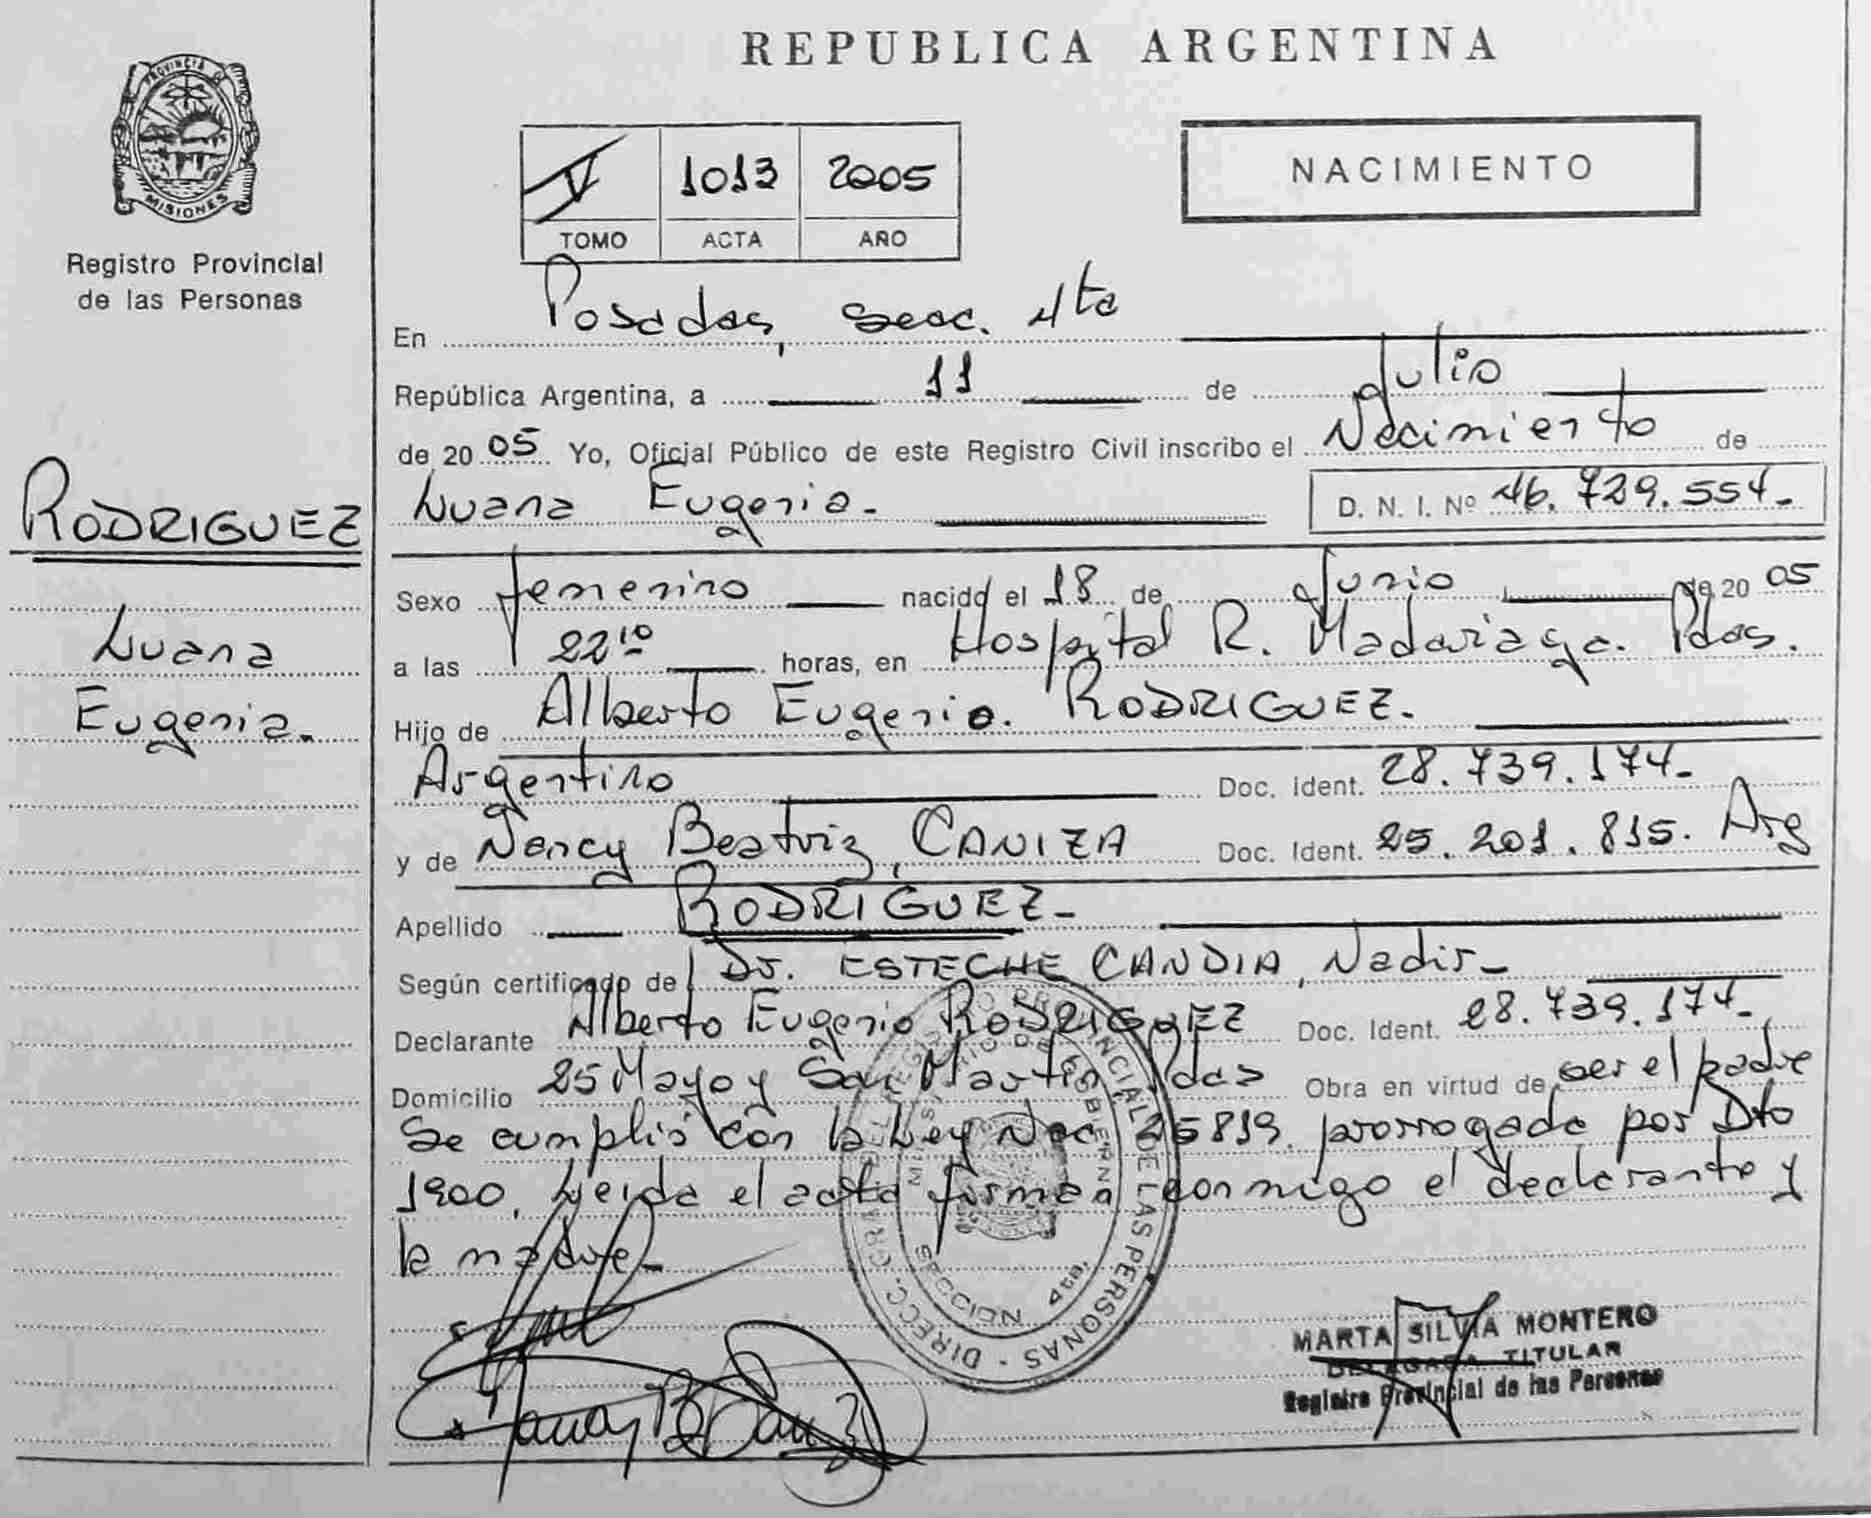 REPUBLICA ARGENTINA
PROVINCIA DE
MISIONES
Registro Provincial
de las Personas
RODRIGUEZ
Luana
Eugenia.
V 1013 2005
TOMO ACTA AÑO
NACIMIENTO
En Posadas, secc. 4ta
República Argentina, a 11 de Julio
de 2005 Yo, Oficial Público de este Registro Civil inscribo el Nacimiento de
Luana Eugenia.- D. N. I. Nº 46.729.554.-
Sexo femenino nacido el 18 de Junio de 2005
a las 22 10 horas, en Hospital R. Madariaga. Pdas.
Hijo de Alberto Eugenio. RODRIGUEZ.
Argentino Doc. Ident. 28.739.174.-
y de Nancy Beatriz, CANIZA Doc. Ident. 25.201.815. Arg
Apellido RODRIGUEZ.-
Según certificado de Dr. ESTECHE CANDIA, Nadir.-
Declarante Alberto Eugenio RODRIGUEZ Doc. Ident. 28.739.174.-
Domicilio 25 Mayo y San Martin Pdas Obra en virtud de ser el padre
Se cumplió con la Ley Nac. 25819. prorrogada por Dto
1900. Leida el acta firman conmigo el declarante y
la madre.-
DIRECC. GRAL DEL REGISTRO PROVINCIAL DE LAS PERSONAS
MINISTERIO DE GOBIERNO
SECCION 4ta.
MARTA SILVIA MONTERO
DELEGADA TITULAR
Registro Provincial de las Personas